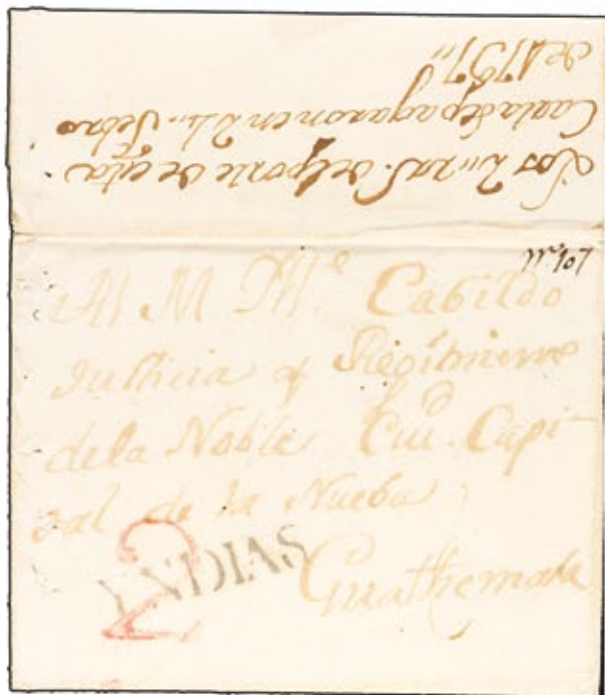 Los 2 r.s del porte de esta
Carta se pagaron en 24 Febro
de 1797
n.o 107
Al M. Ill.e Cabildo
Justicia y Regimiento
de la Noble Ciu.d Capi-
tal de la Nueba
Guathemala
YNDIAS
2